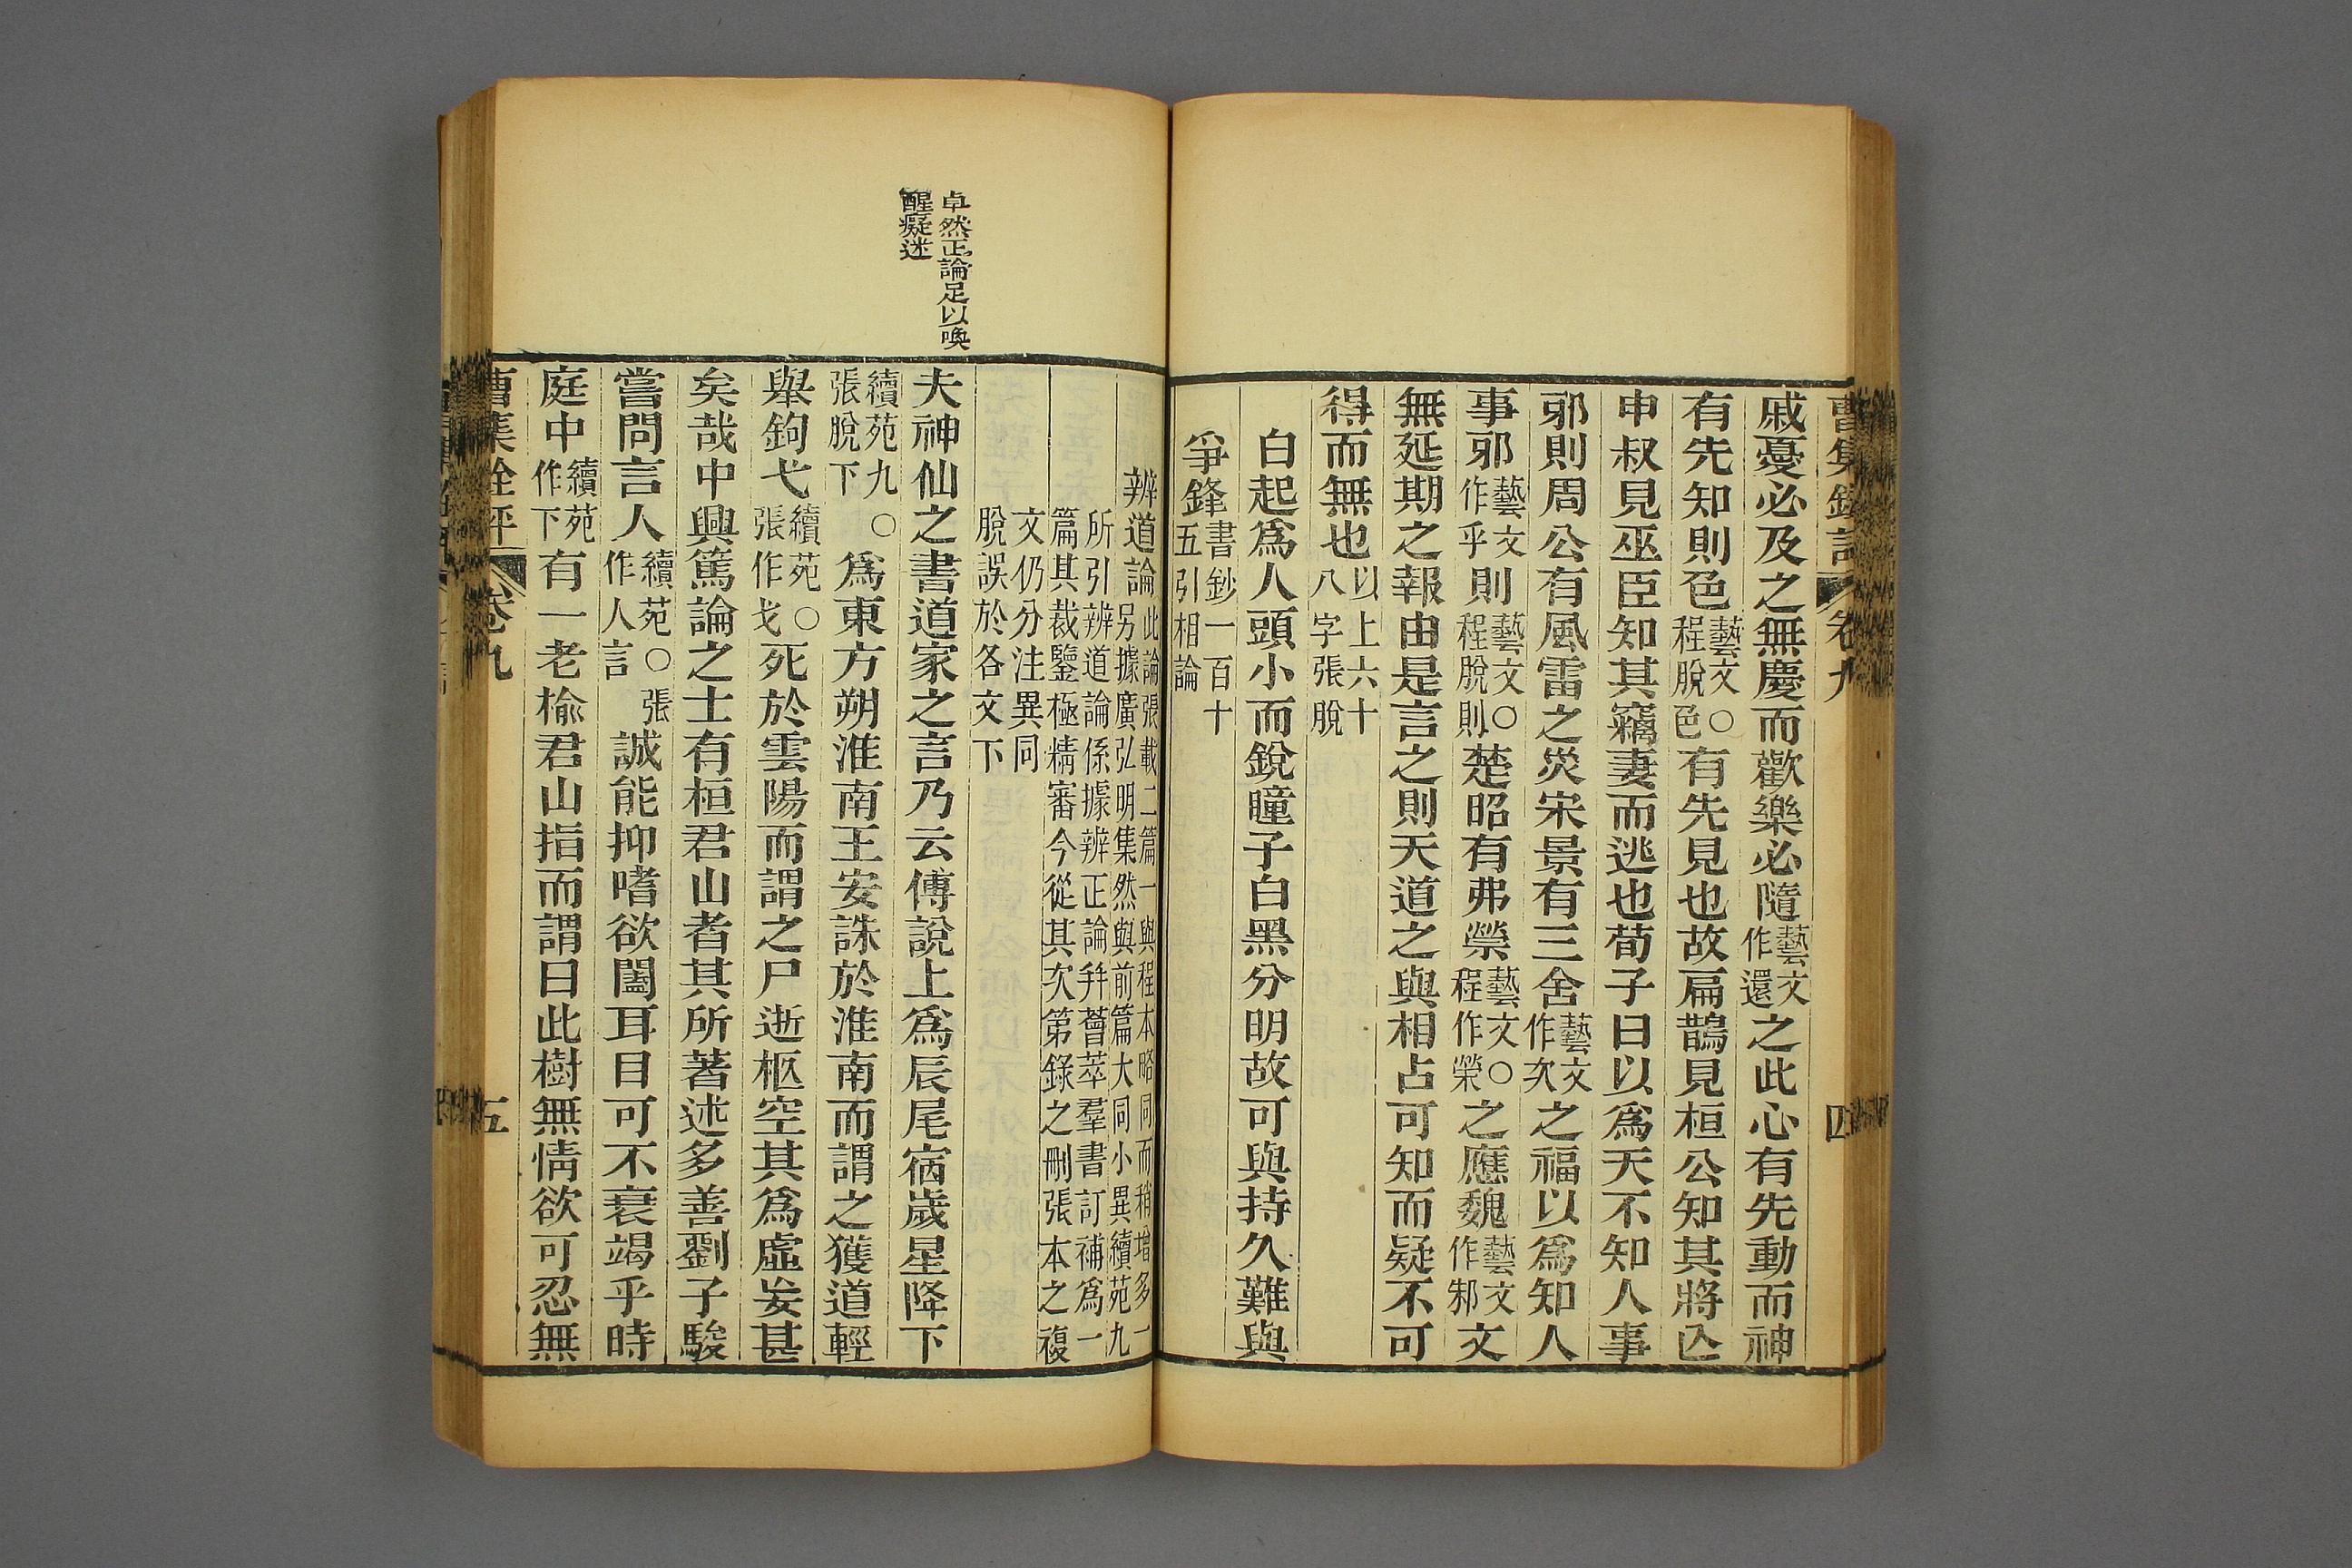 曹集銓評 卷九 四
戚憂必及之無慶而歡樂必隨藝文作還之此心有先動而神
有先知則色藝文○程脫色有先見也故扁鵲見桓公知其將亾
申叔見巫臣知其竊妻而逃也荀子曰以爲天不知人事
邪則周公有風雷之災宋景有三舍藝文作次之福以爲知人
事邪藝文作乎則藝文○程脫則楚昭有弗禜藝文○程作榮之應魏藝文作邾文
無延期之報由是言之則天道之與相占可知而疑不可
得而無也以上六十八字張脫
白起爲人頭小而銳瞳子白黑分明故可與持久難與
爭鋒書鈔一百十五引相論
辨道論此論張載二篇一與程本略同而稍增多一另據廣弘明集然與前篇大同小異續苑九
所引辨道論係據辨正論幷薈萃羣書訂補爲一篇其裁鑒極精審今從其次第錄之刪張本之複
文仍分注異同脫誤於各文下
卓然正論足以喚
醒癡迷
夫神仙之書道家之言乃云傅說上爲辰尾宿歲星降下
續苑九○張脫下爲東方朔淮南王安誅於淮南而謂之獲道輕
舉鉤弋續苑○張作戈死於雲陽而謂之尸逝柩空其爲虛妄甚
矣哉中興篤論之士有桓君山者其所著述多善劉子駿
嘗問言人續苑○張作人言誠能抑嗜欲闔耳目可不衰竭乎時
庭中續苑作下有一老楡君山指而謂曰此樹無情欲可忍無
曹集銓評 卷九 五